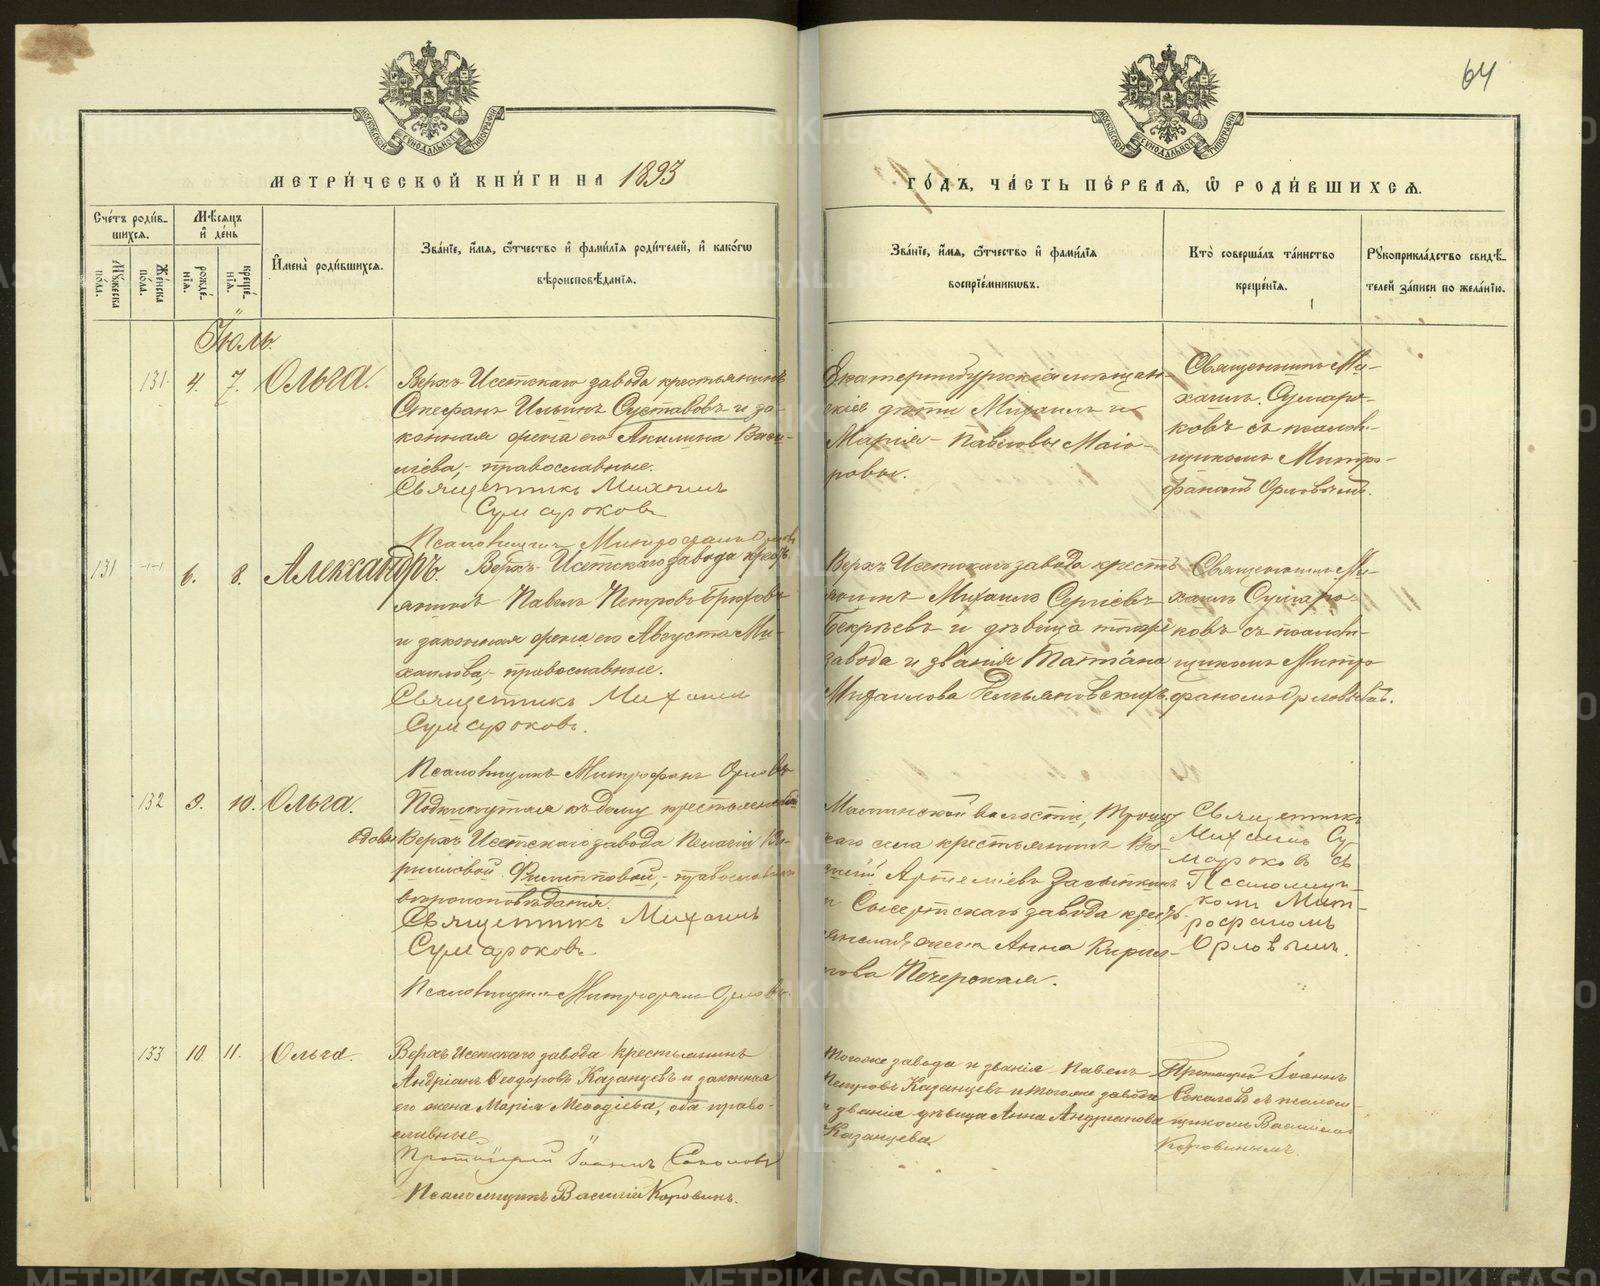 64
МЕТРИ́ЧЕСКОЙ КНИ́ГИ НА 1893
ГО́ДЪ, ЧА́СТЬ ПЕ́РВАЯ, Ѿ РОДИ́ВШИХСЯ.
Сче́тъ роди́в-
шихся.
Мѣ́сяцъ
и де́нь
Му́жеска по́ла.
Же́нска по́ла.
рожде́-
нїя.
креще́-
нїя.
Имена̀ роди́вшихся.
Зва́нїе, и́мя, ѻ́тчество и фами́лїя роди́телей, и како́гѡ
вѣроисповѣ́данїя.
Зва́нїе, и́мя, ѻ́тчество и фами́лїя
воспрїе́мникѡвъ.
Кто̀ соверша́лъ та́инство
креще́нїя.
Рукоприкла́дство свидѣ́-
телей за́писи по жела́нїю.
Іюль.
131 4. 7. Ольга.
Верхъ Исетскаго завода крестьянинъ
Стефанъ Ильинъ Суставовъ и за-
конная жена его Акилина Васи-
лiева, православные.
Священникъ Михаилъ
Сумароковъ
Псаломщикъ Митрофанъ Орловъ
Екатеринбургскiе мѣщан-
скiе дѣти Михаилъ и
Марiя Павловы Маiо-
ровы.
Священникъ Ми-
хаилъ Сумаро-
ковъ съ псалом-
щикомъ Митро-
фаномъ Орловымъ.
131 6. 8. Александръ.
Верхъ-Исетскаго завода крест-
янинъ Павелъ Петровъ Брюховъ
и законная жена его Августа Ми-
хаилова, православные.
Священникъ Михаилъ
Сумароковъ.
Псаломщикъ Митрофанъ Орловъ
Верхъ Исетскаго завода кресть
янинъ Михаилъ Сергiевъ
и дѣвица того же
завода и званiя Татiана
Михаилова
Священникъ Ми-
хаилъ Сумаро-
ковъ съ псалом-
щикомъ Митро
фаномъ Орловымъ.
132 9. 10. Ольга.
Подкинутая къ дому крестьянской
вдовы Верхъ Исетскаго завода Пелагiи Ки-
рилловой Филипповой, православнаго
вѣроисповѣданiя.
Священникъ Михаилъ
Сумароковъ.
Псаломщикъ Митрофанъ Орловъ.
волости, Троиц
каго села крестьянинъ
Артемiевъ Засыпкинъ
и Сысертскаго завода кресть-
янская жена Анна Кирил-
лова Печерская.
Священникъ
Михаилъ Су-
мароковъ съ
Псаломщи-
комъ Мит-
рофаномъ
Орловымъ.
133 10 11. Ольга.
Верхъ Исетскаго завода крестьянинъ
Андрiанъ Ѳеодоровъ Казанцевъ и законная
его жена Марiя Меѳодiева, оба право-
славные.
Протоiерей Iоаннъ Соколовъ
Псаломщикъ Василiй Коровинъ.
Того же завода и званiя Павелъ
Петровъ Казанцевъ и того же завода
и званiя дѣвица Анна Андрiанова
Казанцева
Протоiерей Iоаннъ
Соколовъ съ псалом-
щикомъ Василiемъ
Коровинымъ.